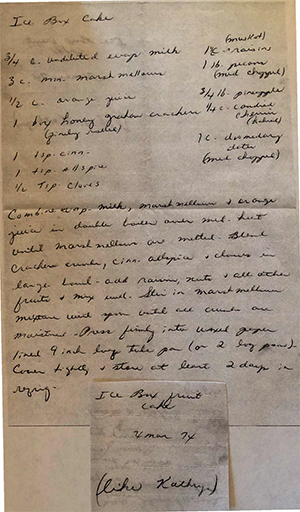 Ice Box Cake
3/4 c. undiluted evap milk
3 c. min. marshmallows
1/2 c. orange juice
1 box honey graham crackers
(finely rolled)
1 tsp. cinn.
1 tsp. allspice
1/2 tsp. cloves
(muscat)
raisins
1 lb. pecans
(med chopped)
3/4 lb. pineapple
1/4 c. candied
cherries
(halved)
1 c. dromedary
dates
(med chopped)
Combine evap. milk, marshmellows & orange
juice in double boiler over med. heat
until marshmellows are melted. Blend
cracker crumbs, cinn. allspice & cloves in
large bowl. add raisins, nuts & all other
fruits & mix well. Stir in marshmellow
mixture with spoon until all crumbs are
moistened. Press firmly into waxed paper
lined 9 inch tube pan (or 2 loaf pans).
Cover tightly & store at least 2 days in
refrig.
Ice Box fruit
cake
Mar 74
(like Kathryn)